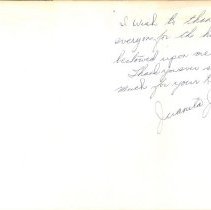 I wish to than
everyone for the h
bestowed upon me
Thank you ever s
much for your h
Juanita J